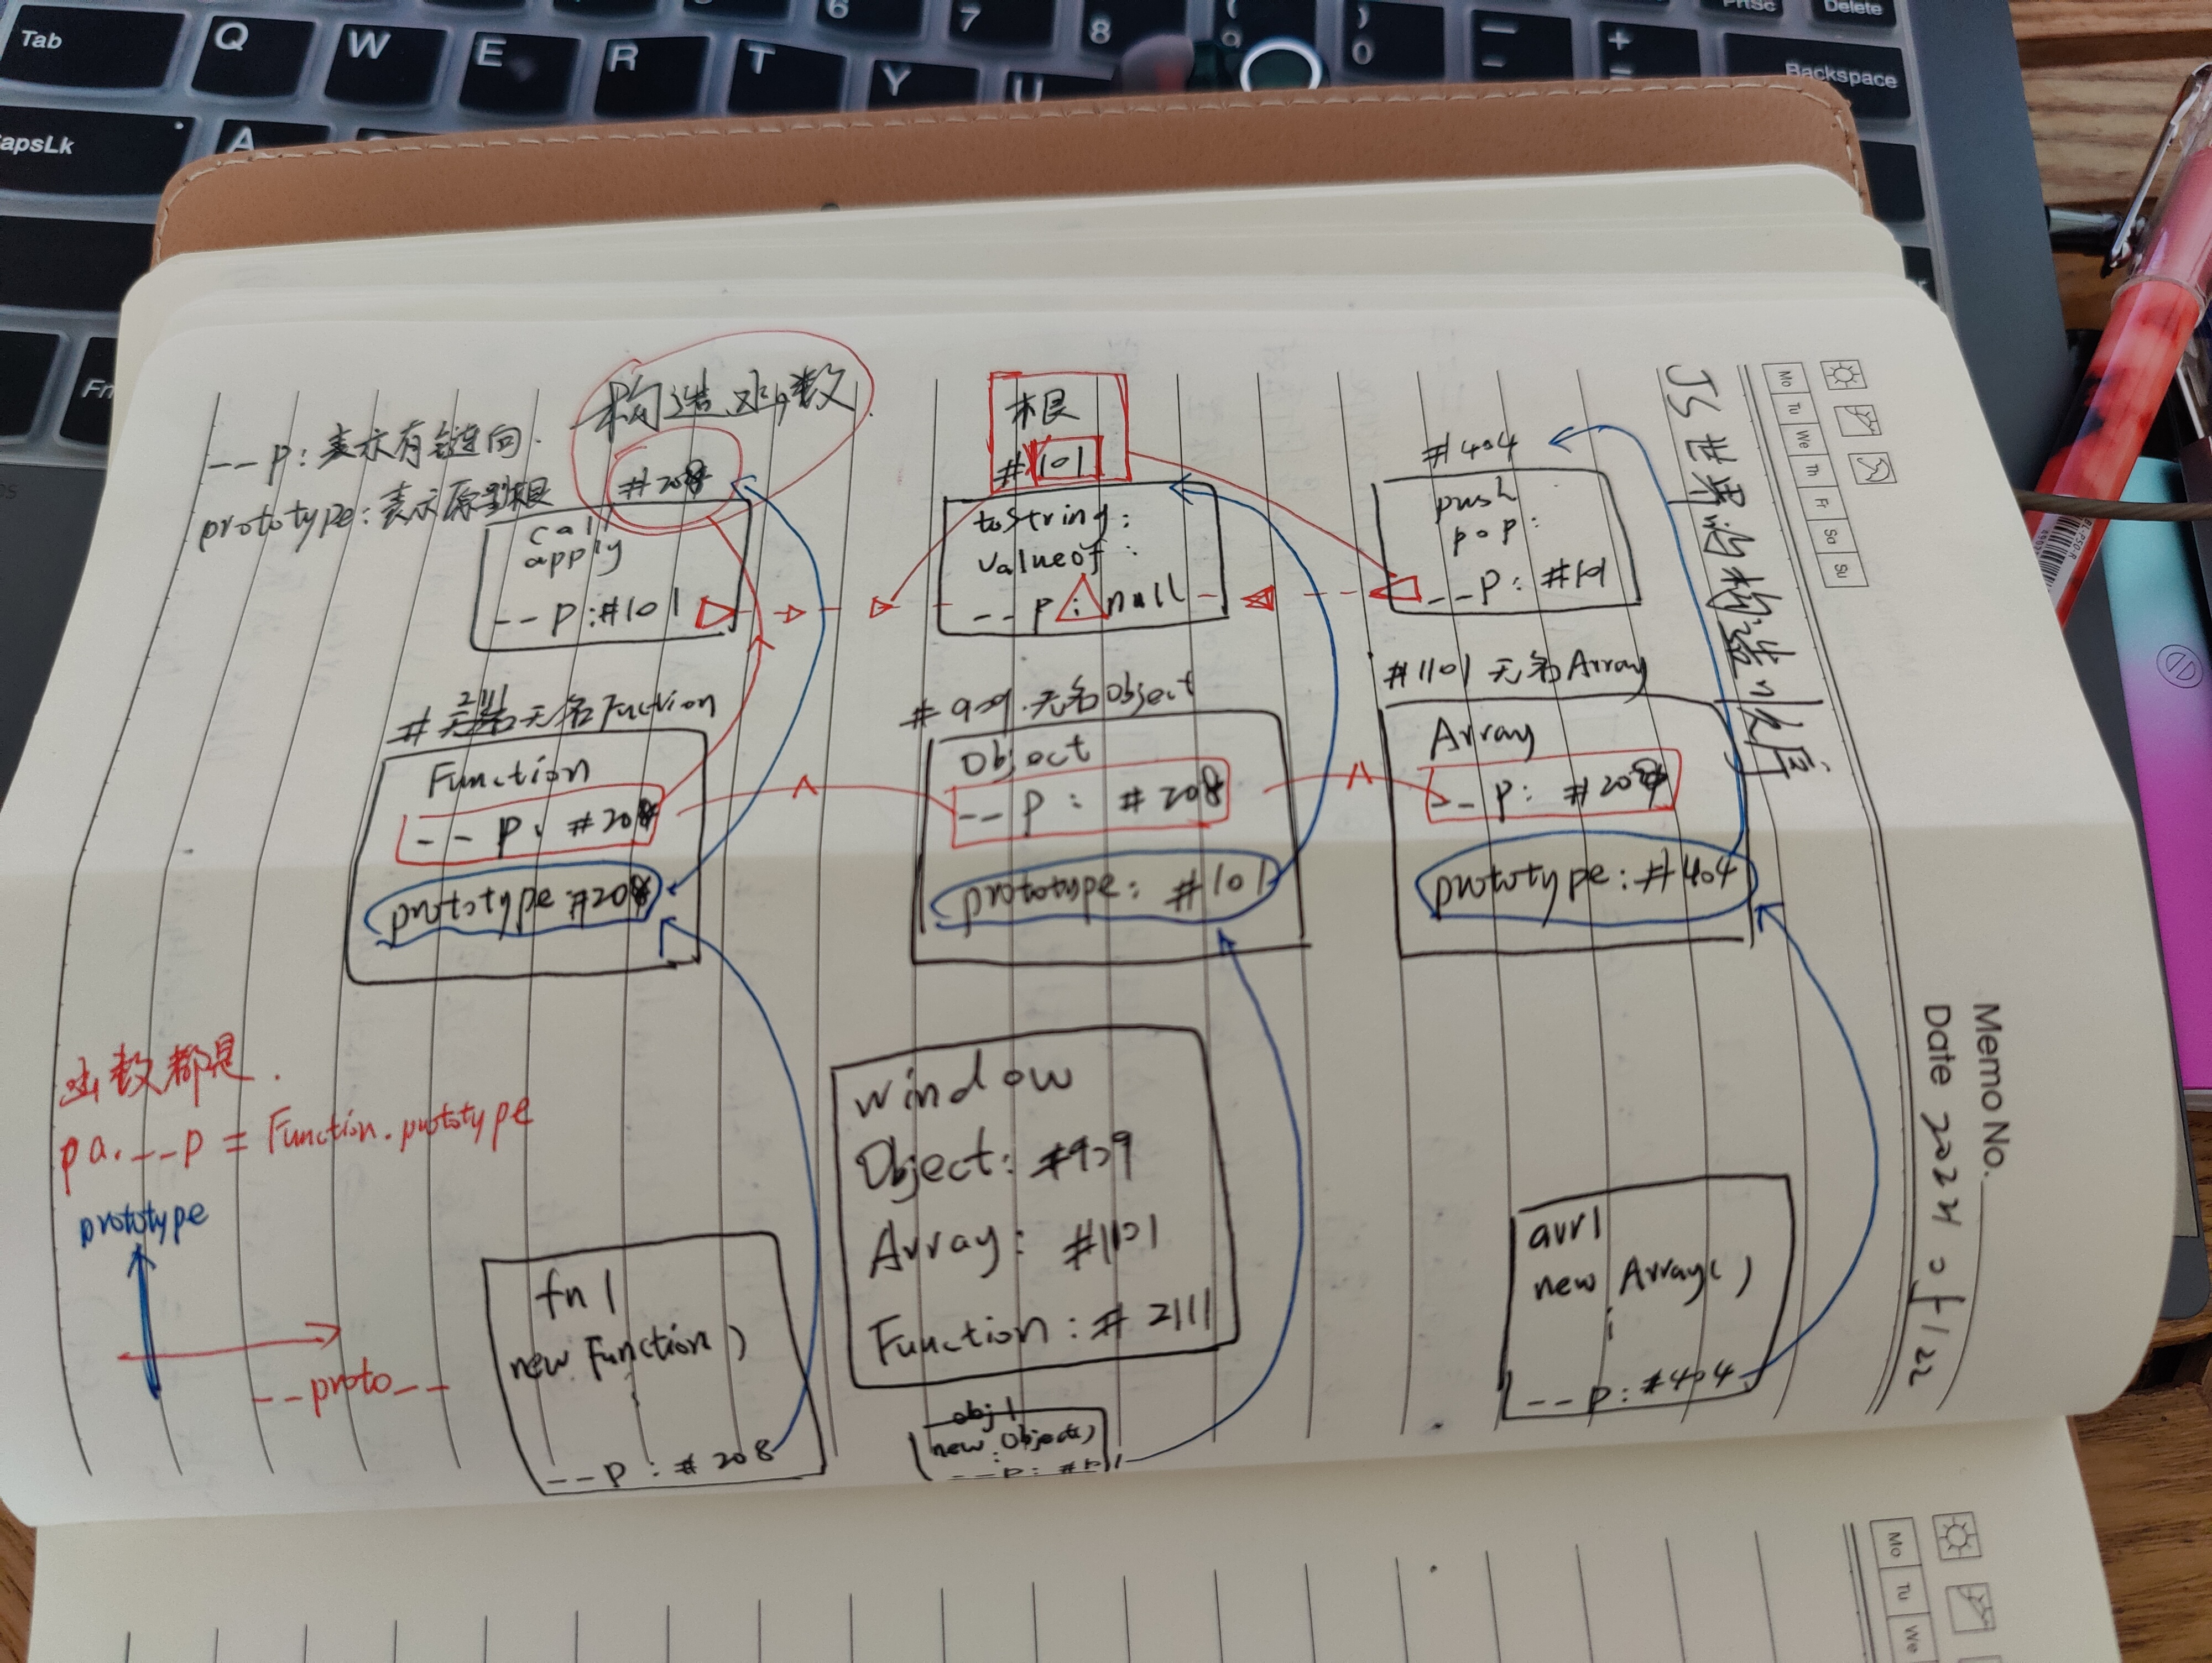 Tab
Q
W
E
R
T
Y
U
6
7
8
9
0
PrtSc
Delete
Backspace
apsLk
A
Fn
JS世界的构造顺序
Mo Tu We Th Fr Sa Su
Memo No.
Date 2022/05/22
构造函数
--p:表示有链向.
prototype:表示原型根
#208
call
apply
--p:#101
根
#101
toString:
valueof:
--p:null
#404
push
pop:
--p:#101
#2111无名Function
Function
--p:#208
prototype:#208
#909.无名Object
Object
--p:#208
prototype:#101
#1101无名Array
Array
--p:#208
prototype:#404
函数都是.
pa.--p=Function.prototype
prototype
--proto--
fn1
new Function)
:
--p:#208
window
Object:#909
Array:#1101
Function:#2111
obj1
new Object()
:
--p:#101
arr1
new Array()
:
--p:#404
Mo Tu We